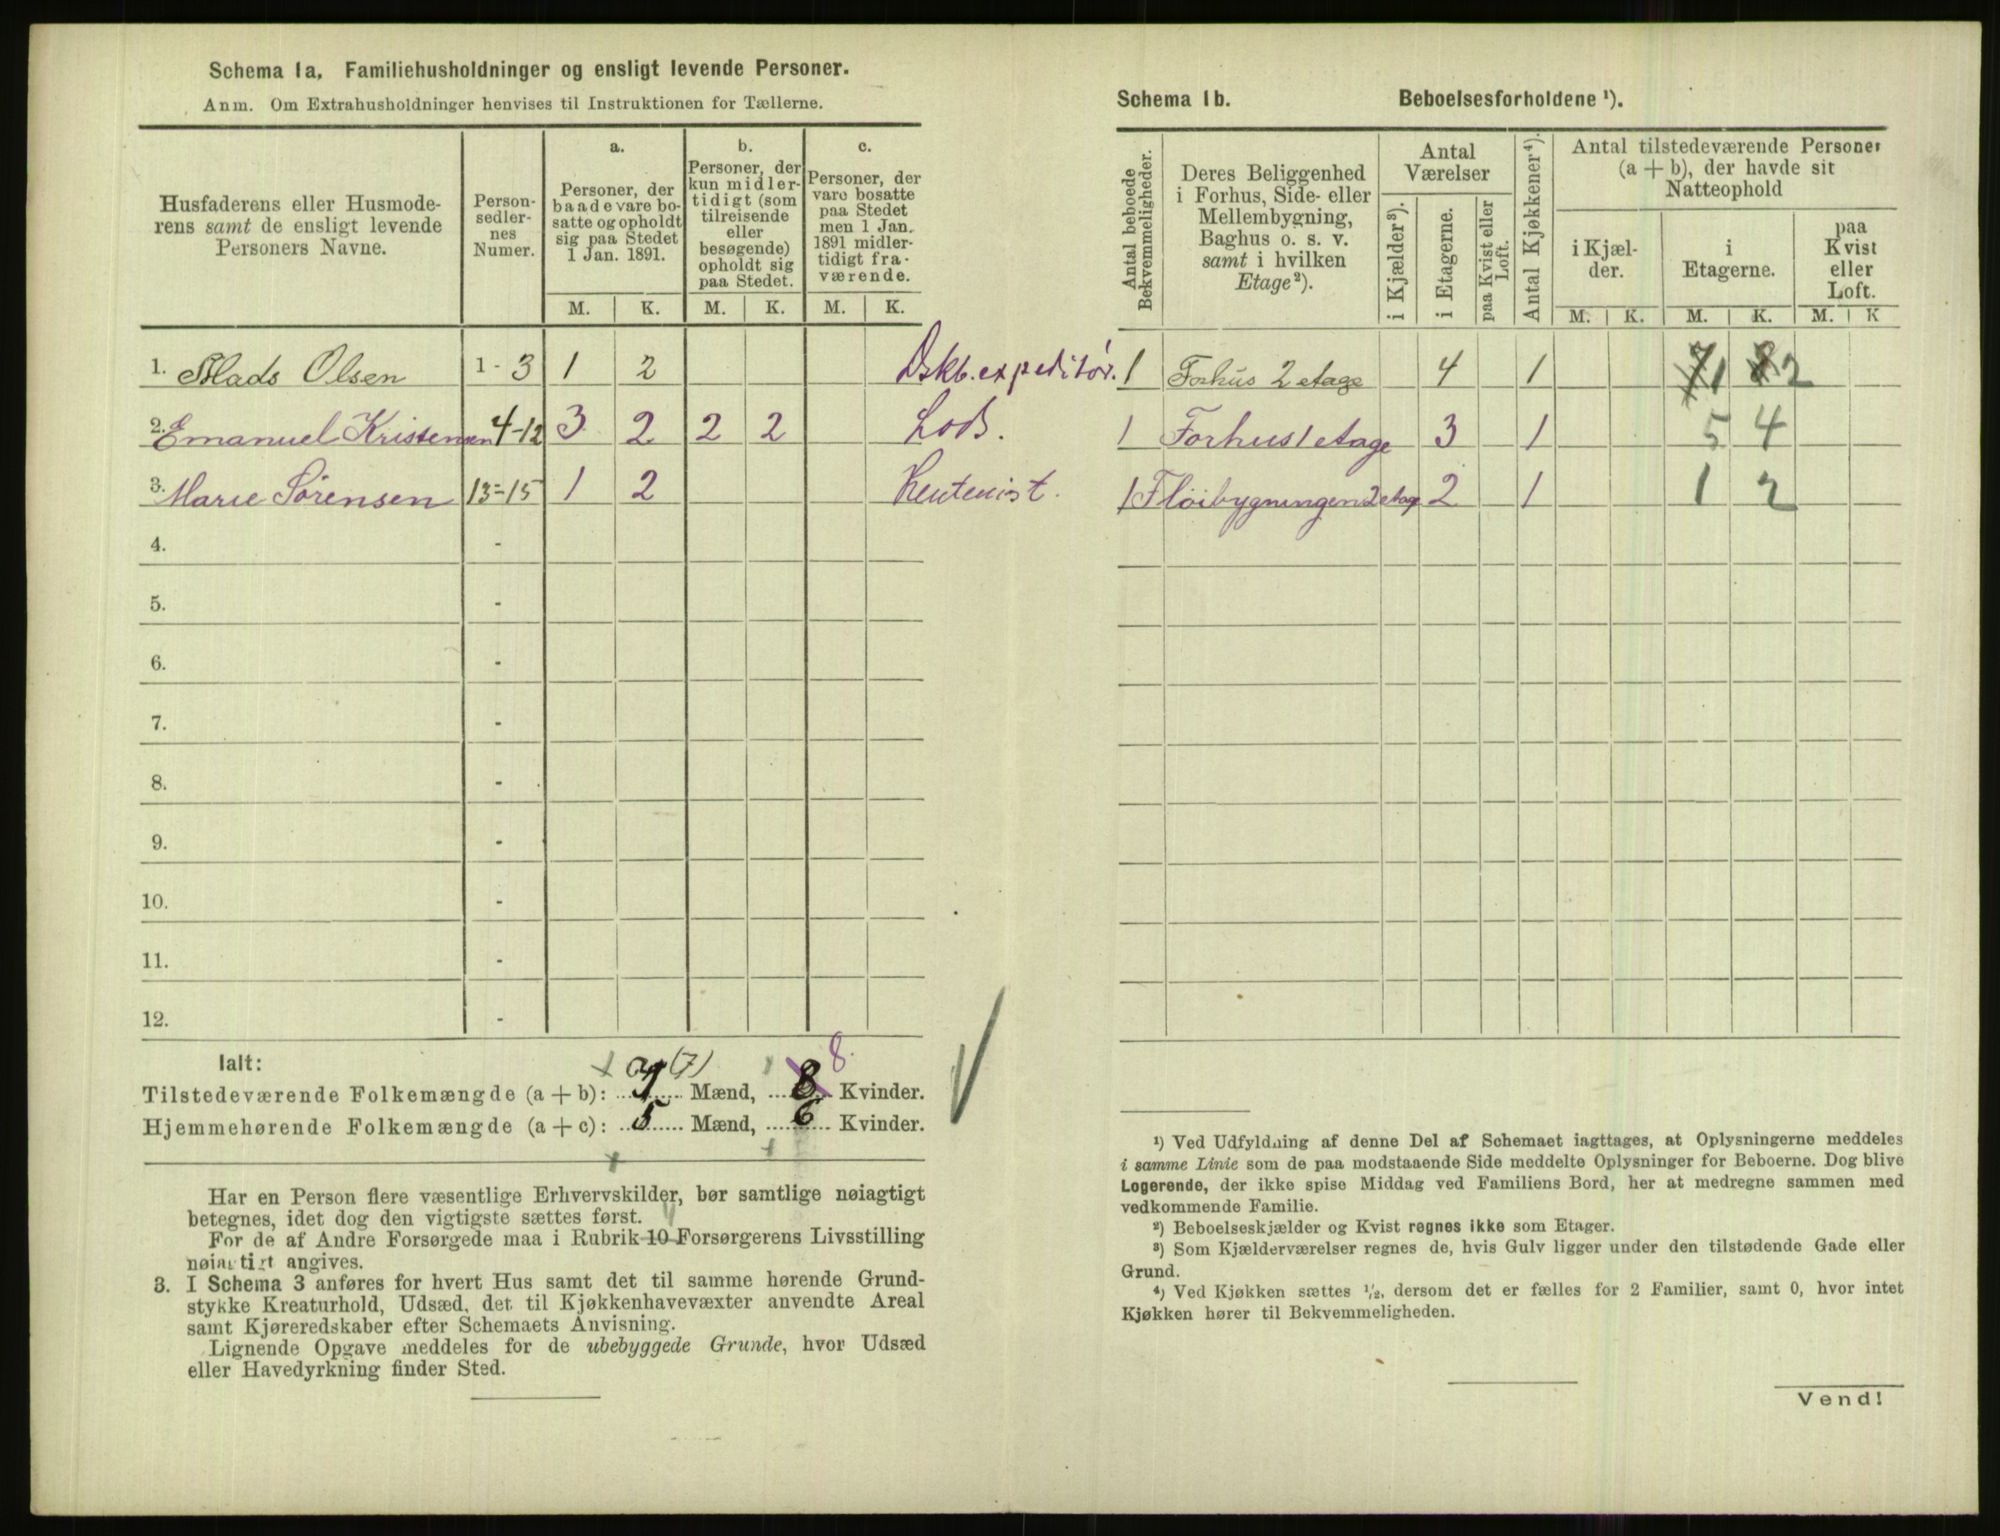 Schema 1a. Familiehusholdninger og ensligt levende Personer.
Anm. Om Extrahusholdninger henvises til Instruktionen for Tællerne.
Husfaderens eller Husmode-
rens samt de ensligt levende
Personers Navne.
Person-
sedler-
nes
Numer.
a.
Personer, der
baade vare bo-
satte og opholdt
sig paa Stedet
1 Jan. 1891.
b.
Personer, der
kun midler-
tidigt (som
tilreisende
eller
besøgende)
opholdt sig
paa Stedet.
c.
Personer, der
vare bosatte
paa Stedet
men 1 Jan.
1891 midler-
tidigt fra-
værende.
M. K. M. K. M. K.
1. Mads Olsen 1 - 3 1 2 Dskb. expeditör.
2. Emanuel Kristensen 4-12 3 2 2 2 Lods.
3. Marie Sørensen 13-15 1 2 Rentenist.
4. -
5. -
6. -
7. -
8. -
9. -
10. -
11. -
12. -
Ialt:
Tilstedeværende Folkemængde (a + b): (7) Mænd, 8 8 Kvinder.
Hjemmehørende Folkemængde (a + c): 5 Mænd, 6 Kvinder.
Har en Person flere væsentlige Erhvervskilder, bør samtlige nøiagtigt
betegnes, idet dog den vigtigste sættes først.
For de af Andre Forsørgede maa i Rubrik 10 Forsørgerens Livsstilling
nøiagtigt angives.
3. I Schema 3 anføres for hvert Hus samt det til samme hørende Grund-
stykke Kreaturhold, Udsæd, det til Kjøkkenhavevæxter anvendte Areal
samt Kjøreredskaber efter Schemaets Anvisning.
Lignende Opgave meddeles for de ubebyggede Grunde, hvor Udsæd
eller Havedyrkning finder Sted.
Schema 1b. Beboelsesforholdene ¹).
Antal beboede
Bekvemmeligheder.
Deres Beliggenhed
i Forhus, Side- eller
Mellembygning,
Baghus o. s. v.
samt i hvilken
Etage²).
Antal
Værelser
i Kjælder³).
i Etagerne.
paa Kvist eller
Loft.
Antal Kjøkkener⁴).
Antal tilstedeværende Personer
(a + b), der havde sit
Natteophold
i Kjæl-
der.
i
Etagerne.
paa
Kvist
eller
Loft.
M. K. M. K. M. K
1 Forhus 2 etage 4 1 7 1 8 2
1 Forhus 1 etage 3 1 5 4
1 Flöibygningen 2 etage 2 1 1 2
¹) Ved Udfyldning af denne Del af Schemaet iagttages, at Oplysningerne meddeles
i samme Linie som de paa modstaaende Side meddelte Oplysninger for Beboerne. Dog blive
Logerende, der ikke spise Middag ved Familiens Bord, her at medregne sammen med
vedkommende Familie.
²) Beboelseskjælder og Kvist regnes ikke som Etager.
³) Som Kjælderværelser regnes de, hvis Gulv ligger under den tilstødende Gade eller
Grund.
⁴) Ved Kjøkken sættes ½, dersom det er fælles for 2 Familier, samt 0, hvor intet
Kjøkken hører til Bekvemmeligheden.
Vend!